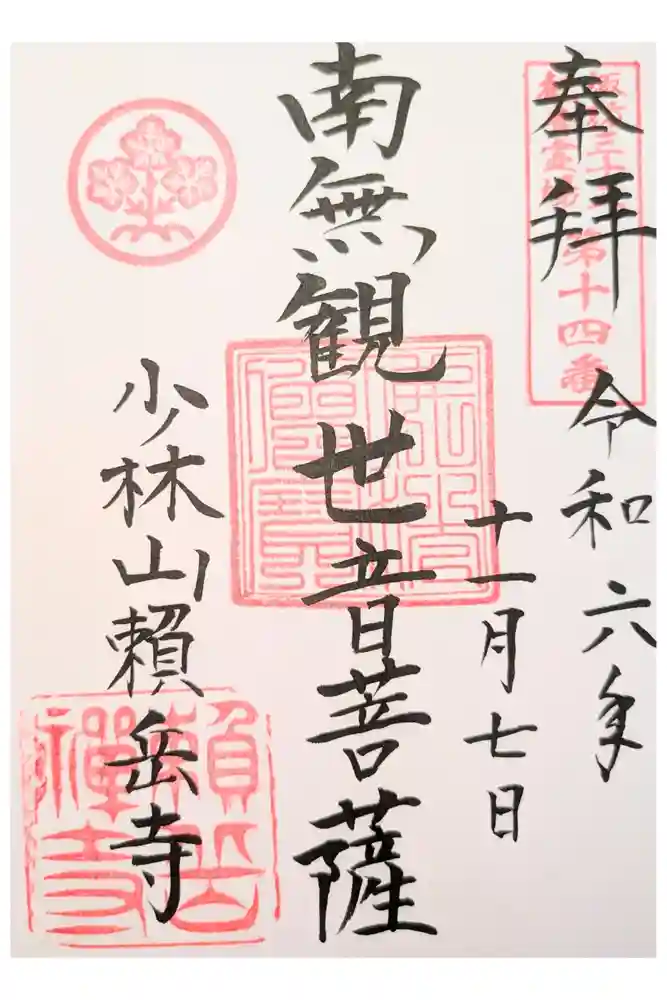 奉拝
令和六年
十一月七日
南無観世音菩薩
少林山頼岳寺
第十四番
佛法僧寶
頼岳
禅寺